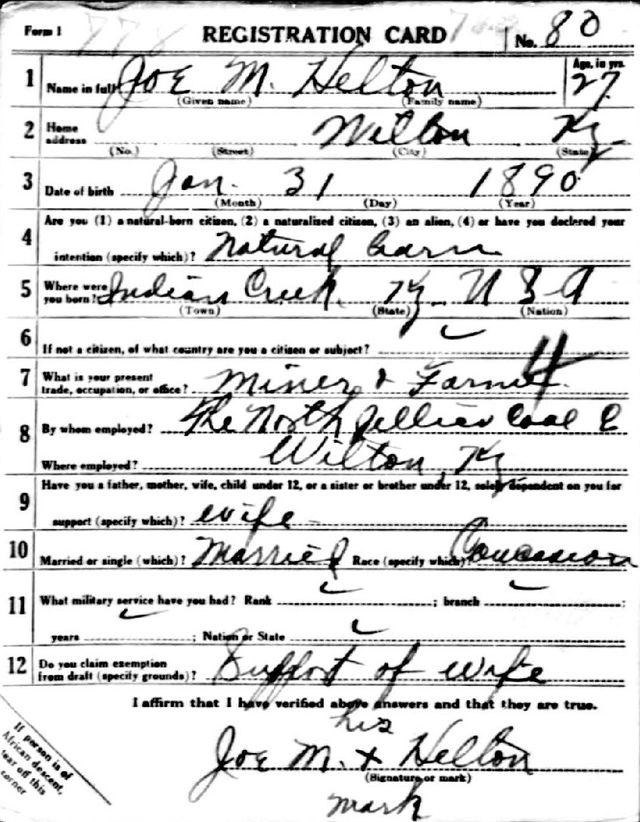 Form 1 778 REGISTRATION CARD No. 80
1 Name in full Joe M. Helton Age, in yrs. 27
(Given name) (Family name)
2 Home address Wilton Ky
(No.) (Street) (City) (State)
3 Date of birth Jan. 31 1890
(Month) (Day) (Year)
Are you (1) a natural-born citizen, (2) a naturalized citizen, (3) an alien, (4) or have you declared your
4 intention (specify which)? Natural born
5 Where were you born? Indian Creek Ky U S A
(Town) (State) (Nation)
6 If not a citizen, of what country are you a citizen or subject?
7 What is your present trade, occupation, or office? Miner & Farmer 4
8 By whom employed? The North Jellico Coal C
Where employed? Wilton, Ky
9 Have you a father, mother, wife, child under 12, or a sister or brother under 12, solely dependent on you for
support (specify which)? wife
10 Married or single (which)? Married Race (specify which) Caucasion
11 What military service have you had? Rank ; branch ;
years ; Nation or State
12 Do you claim exemption from draft (specify grounds)? Support of wife
I affirm that I have verified above answers and that they are true.
his
Joe M. x Helton
(Signature or mark)
mark
If person is of
African descent,
tear off this
corner